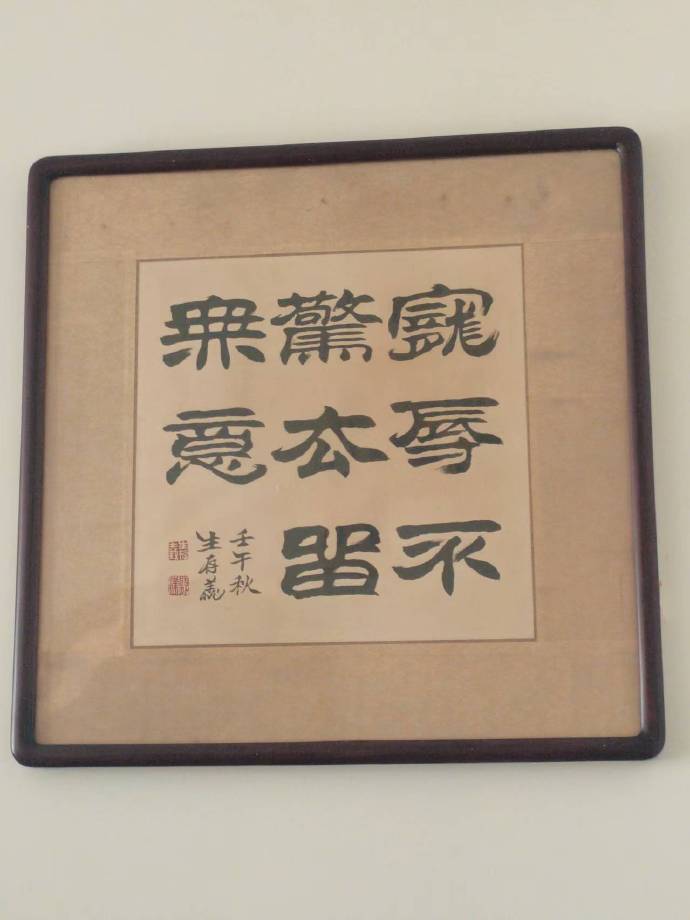 寵辱不
驚去留
無意
壬午秋
生存義